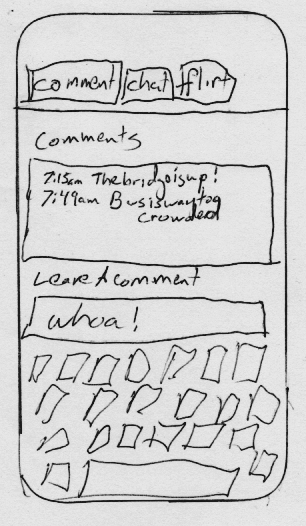 comment chat flirt
Comments
7:15am The bridge is up!
7:49am Bus is way too
crowded
Leave A comment
whoa!